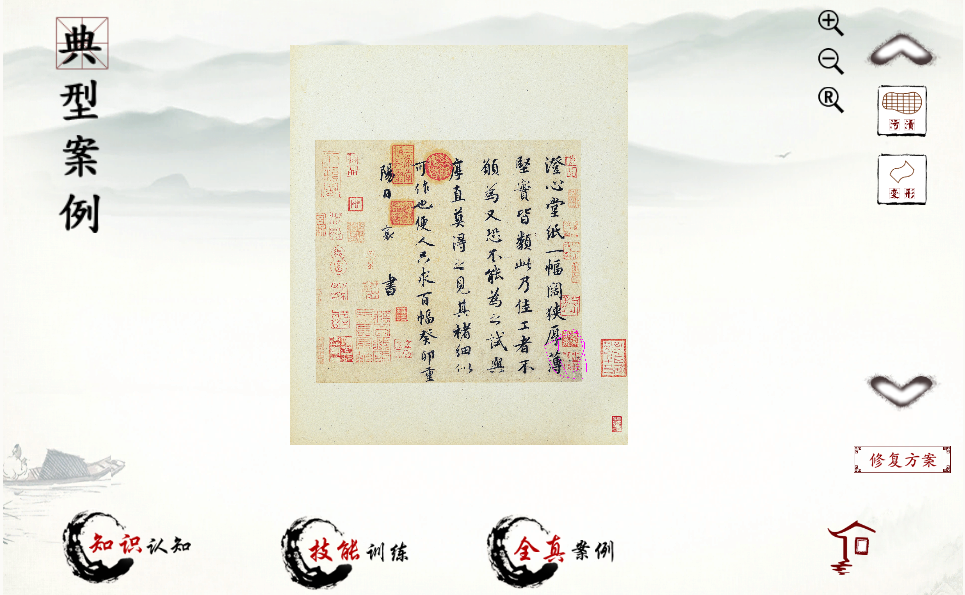 典型案例
R
污渍
变形
澄心堂纸一幅阔狭厚薄
堅實皆類此乃佳工者不
願為又恐不能為之試與
厚直莫得之見其楮細似
可作也便人只求百幅癸卯重
陽日襄書
修复方案
知识认知
技能训练
全真案例